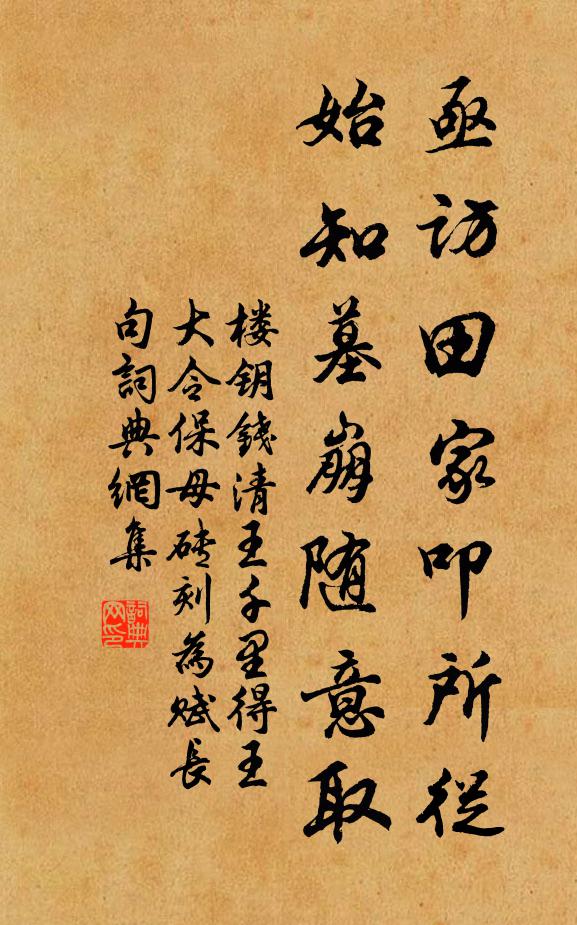 亟访田家叩所從
始知墓崩随意取
楼钥錢清王千里得王
大令保母磚刻為赋長
句詞典網集
詞典
网印